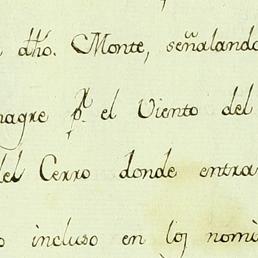 dho. Monte, señalando
nagre p.r el Viento del
del Cerro donde entra
o incluso en los nomi